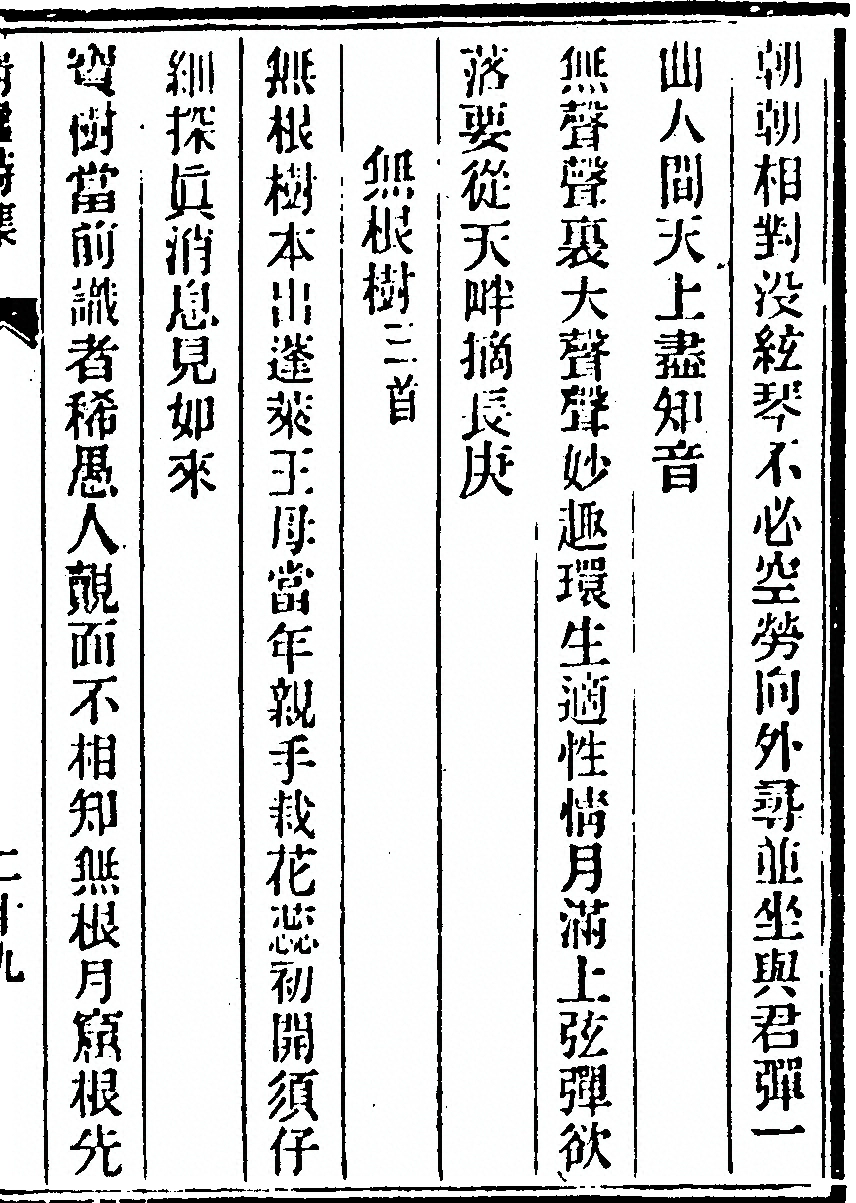 朝朝相對没絃琴不必空勞向外尋並坐與君彈一
曲人間天上盡知音
無聲聲裏大聲聲妙趣環生適性情月滿上弦彈欲
落要從天畔摘長庚
無根樹三首
無根樹本出蓬萊王母當年親手栽花蕊初開須仔
細探眞消息見如來
寳樹當前識者稀愚人覿面不相知無根月窟根先
二十九